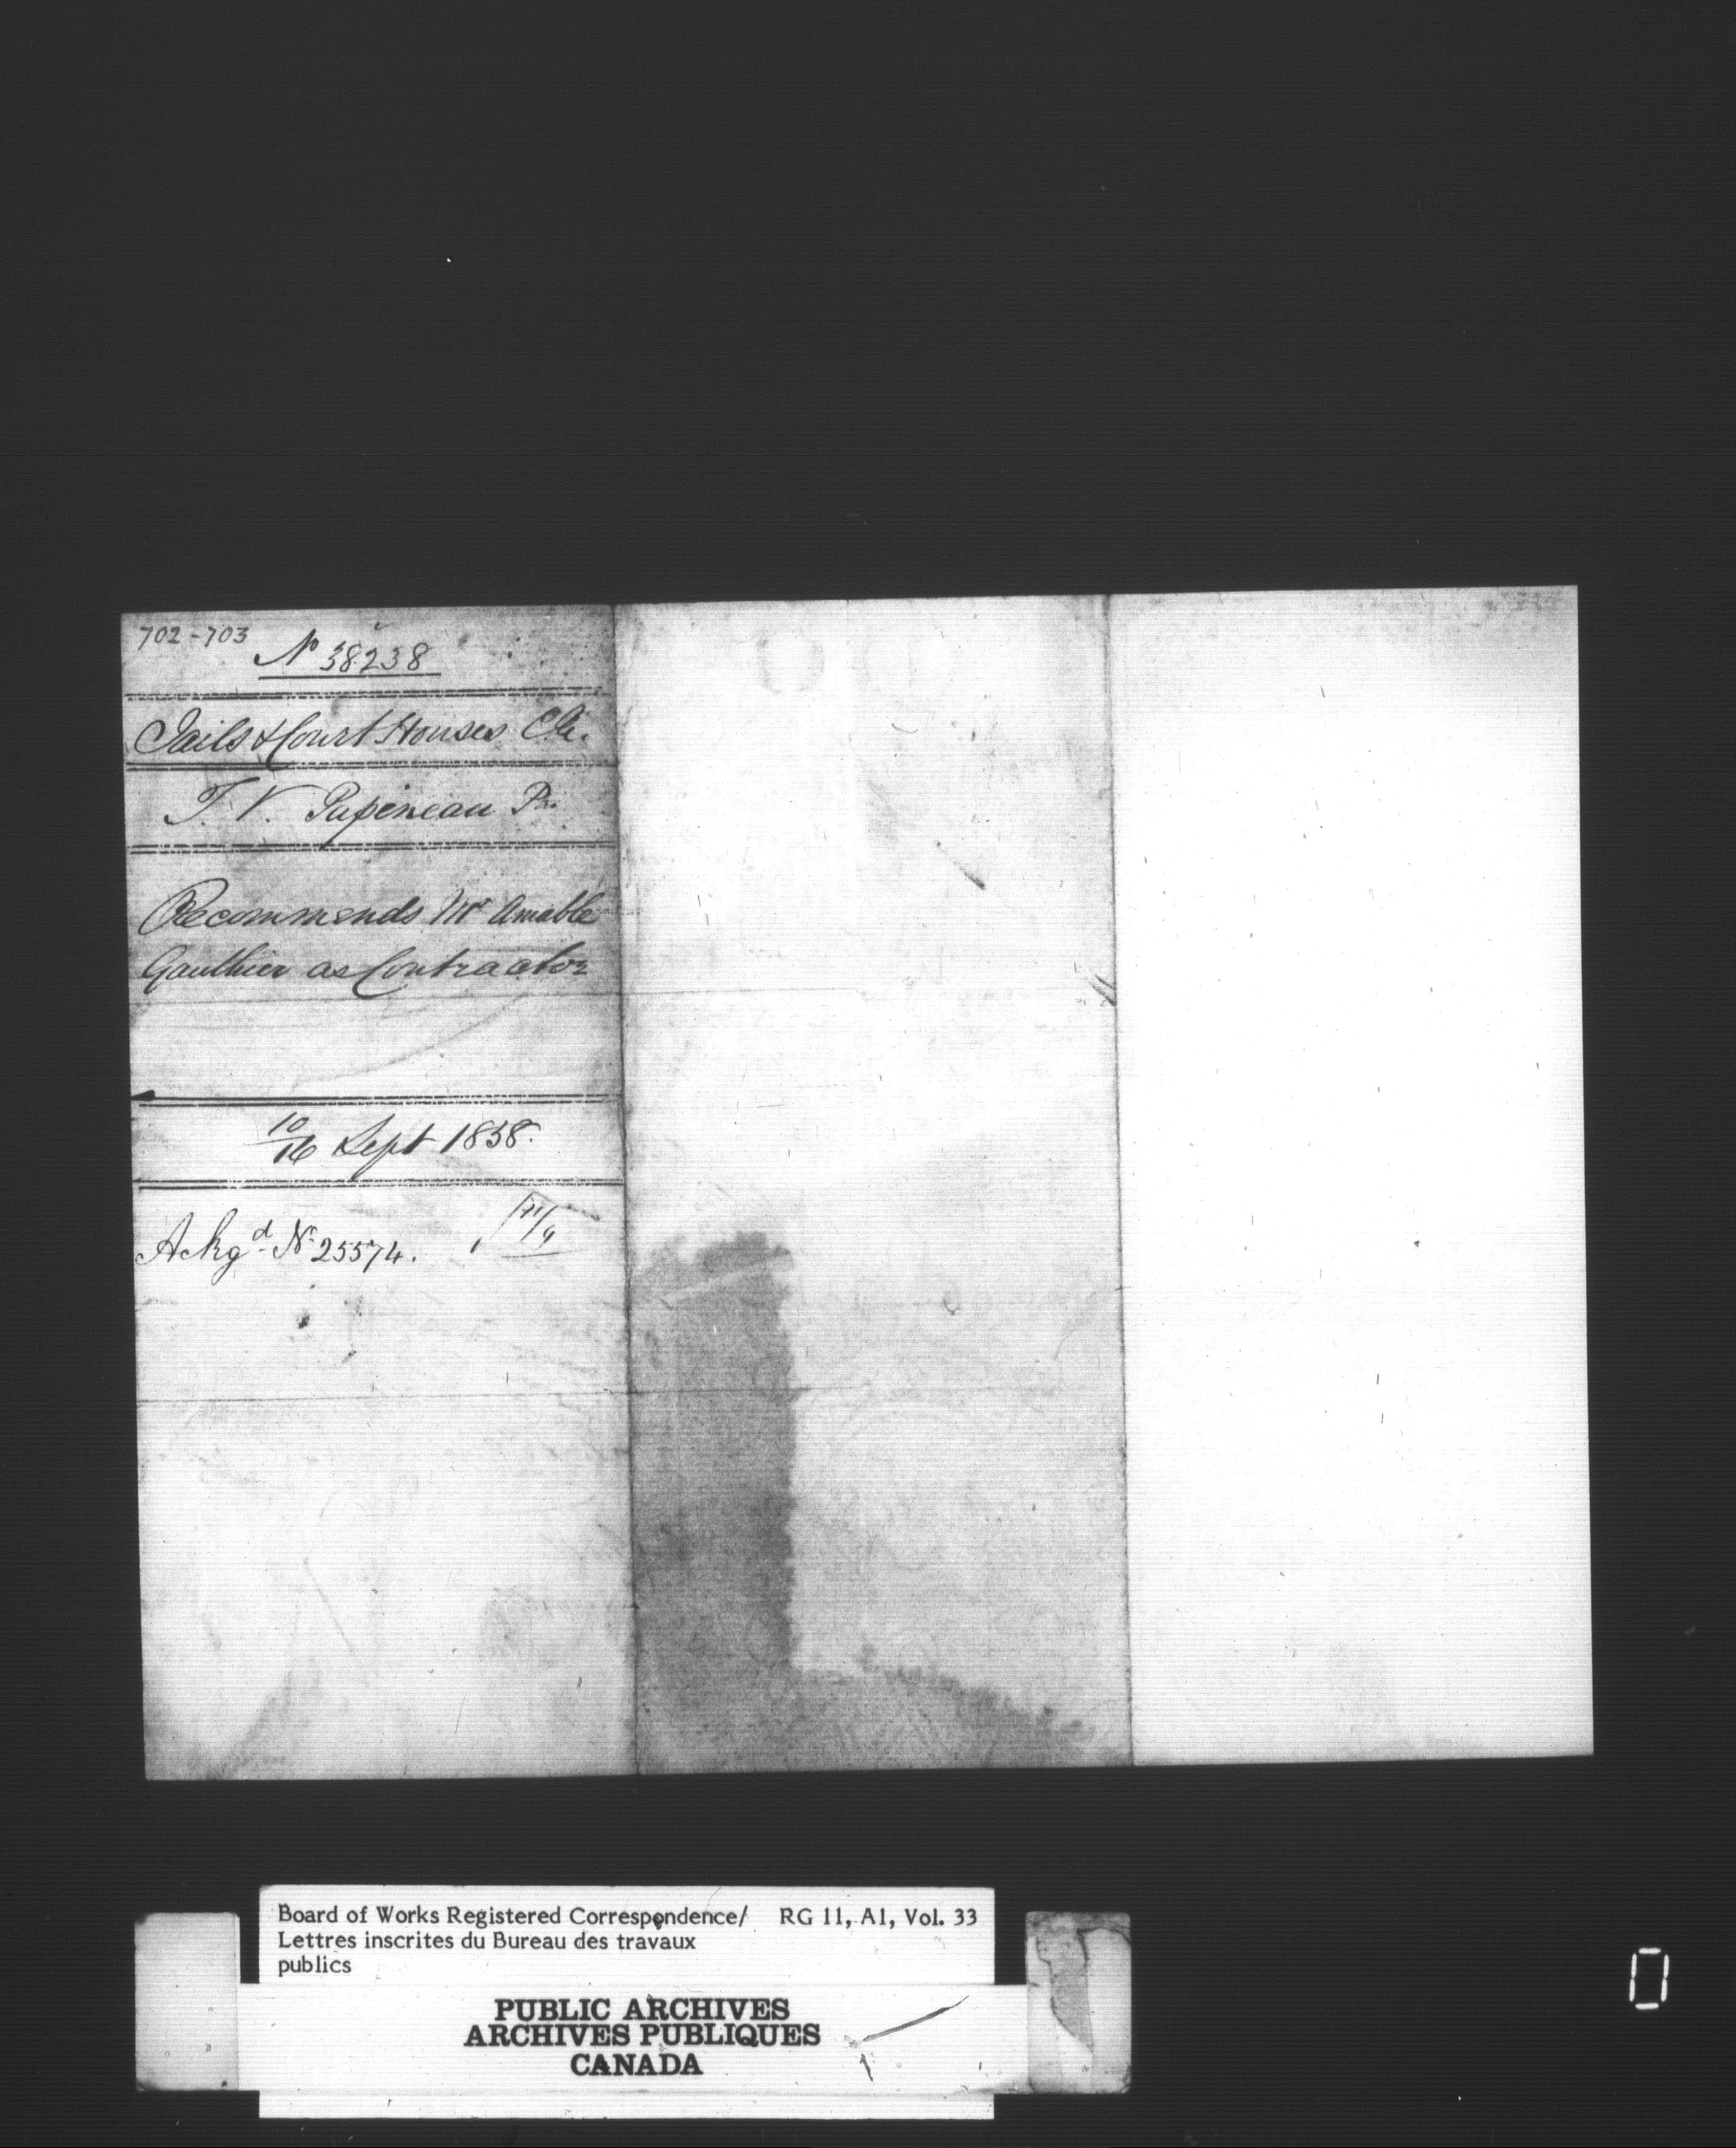 702-703
No 38238
Jails & Court Houses C.E.
T. V. Papineau Pr.
Recommends Mr Amable
Gauthier as Contractor
10/16 Sept 1858.
Ackgd No 25574.
Board of Works Registered Correspondence/ RG 11, A1, Vol. 33
Lettres inscrites du Bureau des travaux
publics
PUBLIC ARCHIVES
ARCHIVES PUBLIQUES
CANADA
0